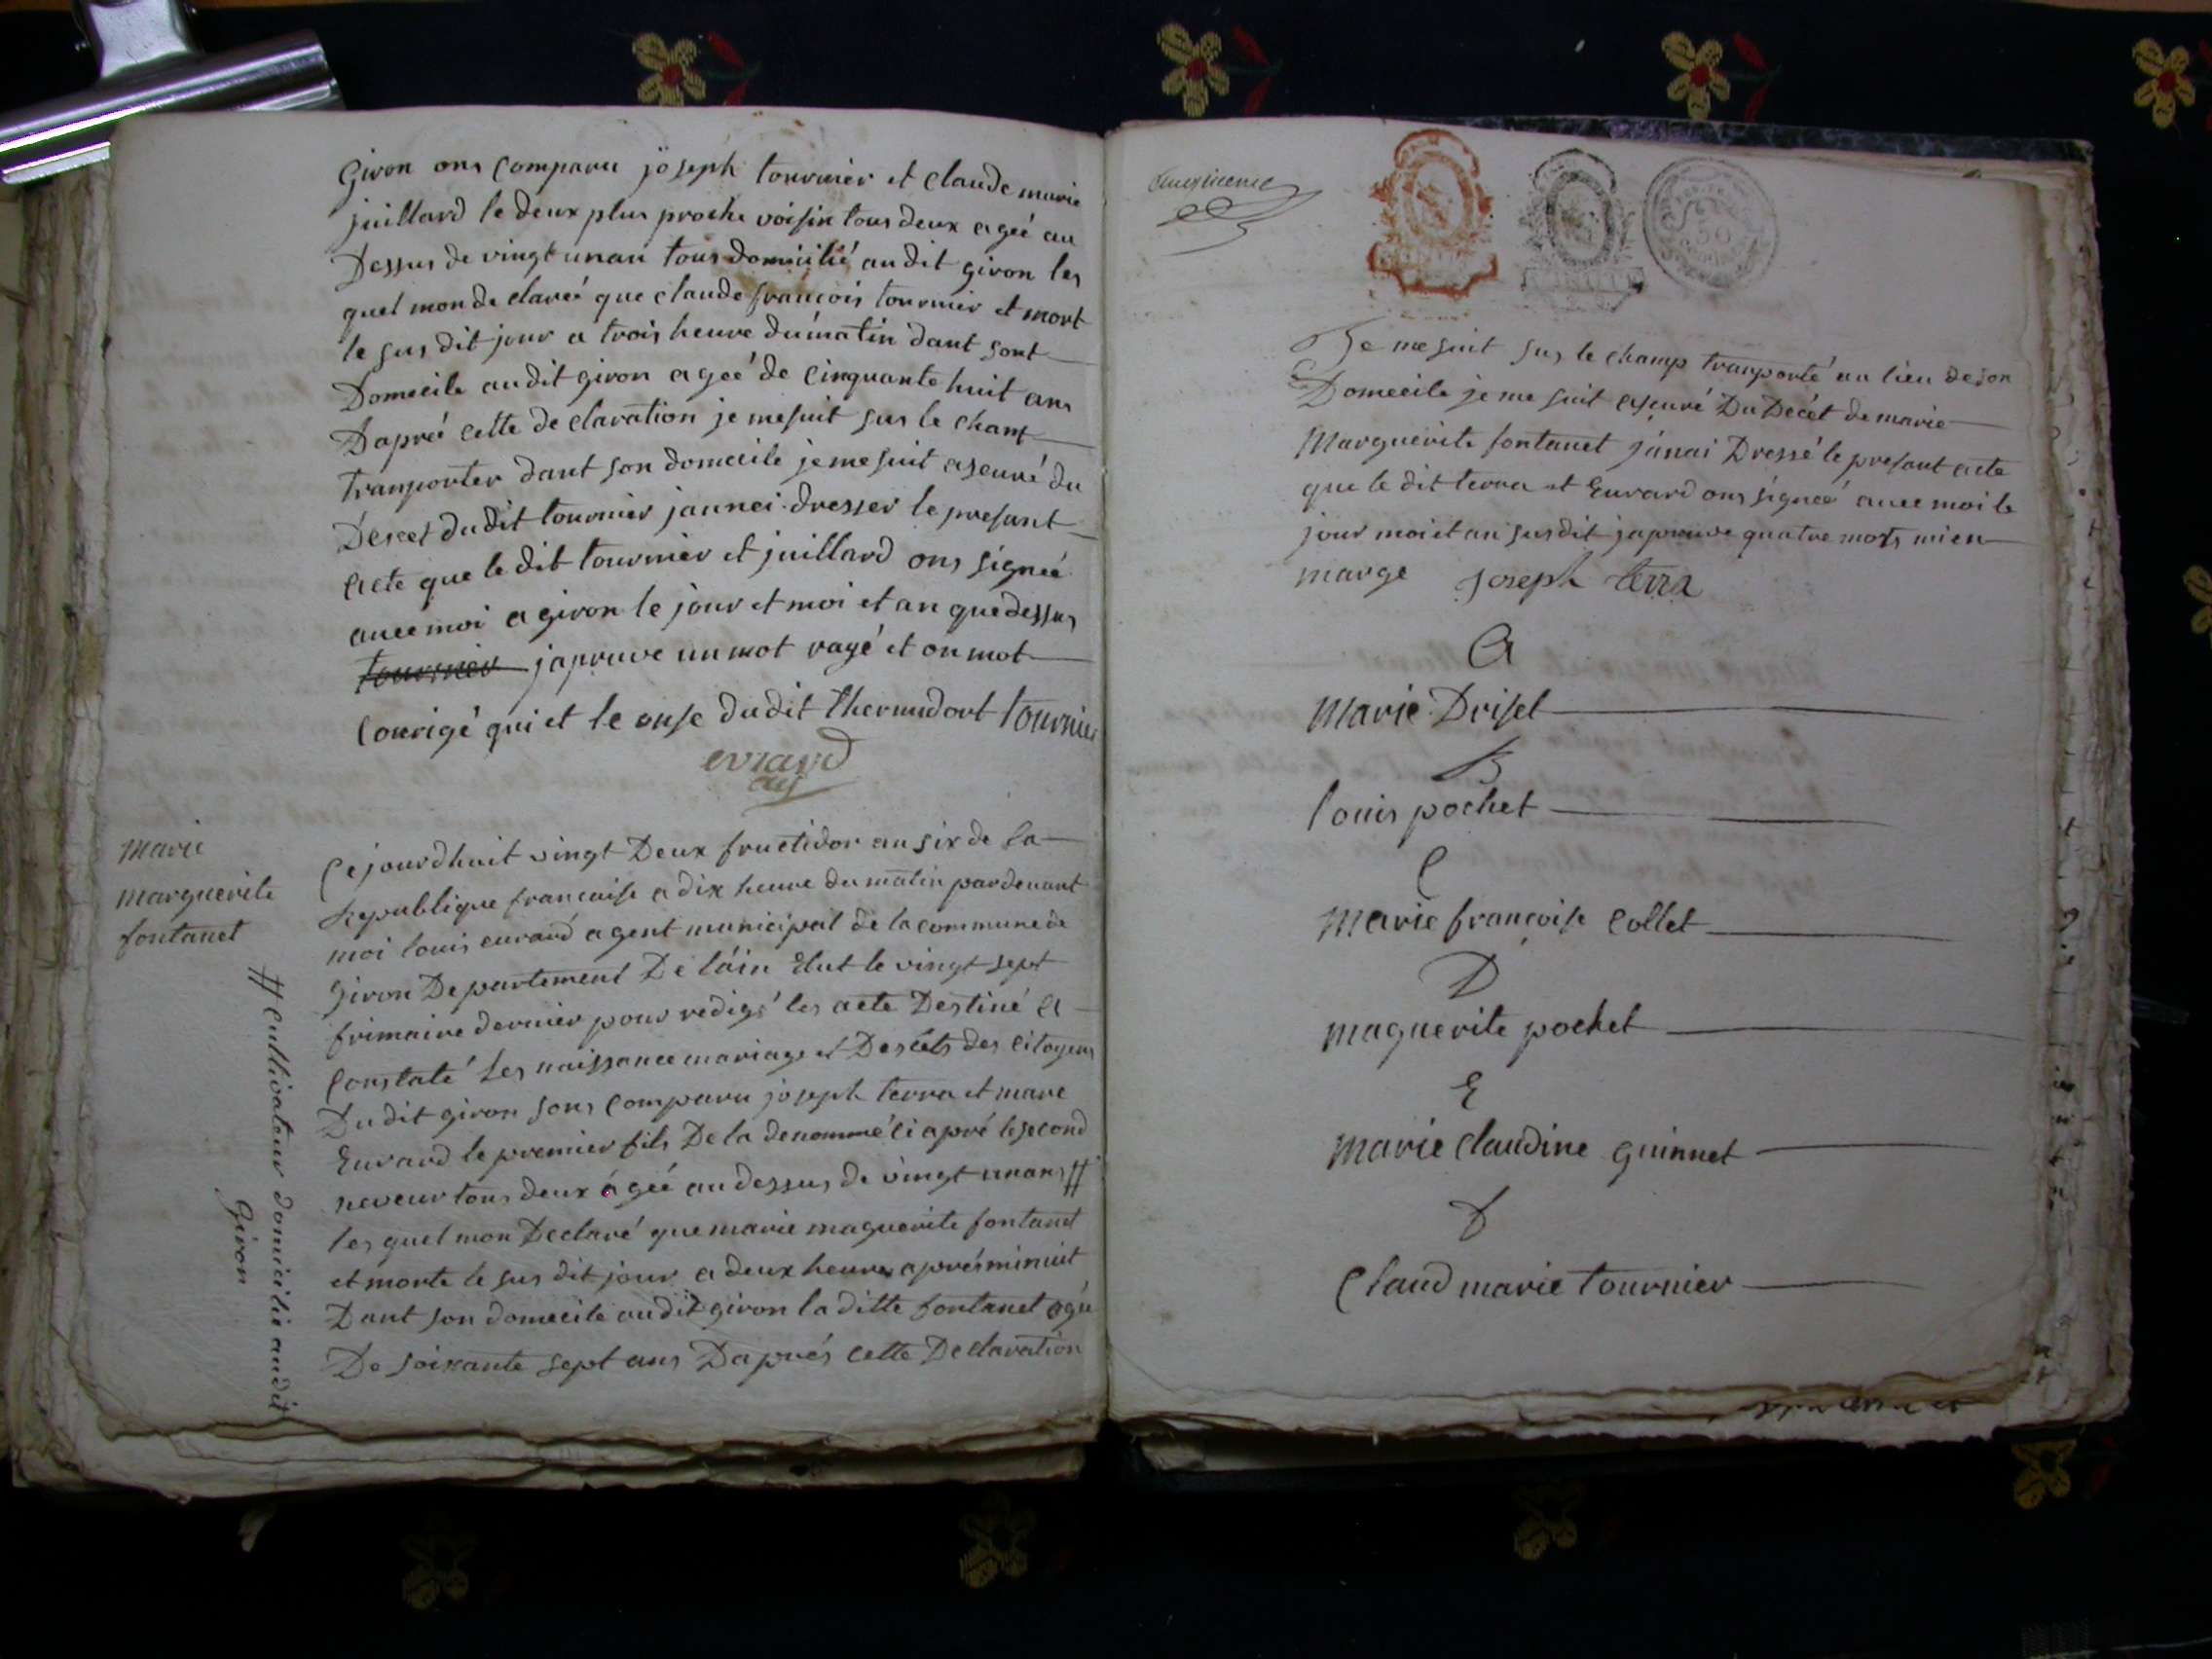 Giron ons Comparu joseph tournier et Claude marie
juillard le deux plus proche voisin tous deux agéé au
Dessus de vingt unan tous domicilié audit giron les
quel mon de claréé que claude francois tournier et mort
le sus dit jour a trois heure du matin dant sont
Domecile audit giron agéé de Cinquante huit ans
Dapréé Cette de claration je me suit sus le chant
tranporter dant son domecile je me suit aseuré du
Déscet dudit tournier jannei dresser le presant
acte que le dit tournier et juillard ons signéé
avec moi a giron le jour et moi et an que dessus
tournier japruve un mot rayé et on mot
Courigé qui et le onse dudit thermidort tournier
evrard
agt
marie
marguerite
fontanet
Ce jourdhuit vingt Deux fructidor an six de la
Republique francaise a dix heure du matin pardevant
moi louis euvrard agent municipal de la commune de
giron Departement De láin Elut le vingt sept
frimaire dernier pour redigé les acte Destiné a
Constaté les naissance mariage et Descets des Citoyens
Dudit giron sons Comparu joseph terra et marc
Euvrard le premier fils De la denommé Ci apré le second
neveur tous deux ágéé au dessus de vingt unans #
les quel mon Declaré que marie maguerite fontanet
et morte le sus dit jour a deux heures aprés minuit
Dant son domecile audit giron la ditte fontanet agée
De soixante sept ans Daprés Cette Declaration
# Cultivateur domicilié audit
Giron
Je me suit sus le champ tranporté au lieu de son
Domecile je me suit aseuré Du Décét de marie
Marguerite fontanet jánai Dressé le presant acte
que le dit terra et Euvrard ons signéé avec moi le
jour moi et an susdit japruve quatre mots mi en
marge joseph terra
A
Marie Driset
B
louis pochet
C
Marie françoise Collet
D
maguerite pochet
E
Marie Claudine guinnet
F
Claud marie tournier